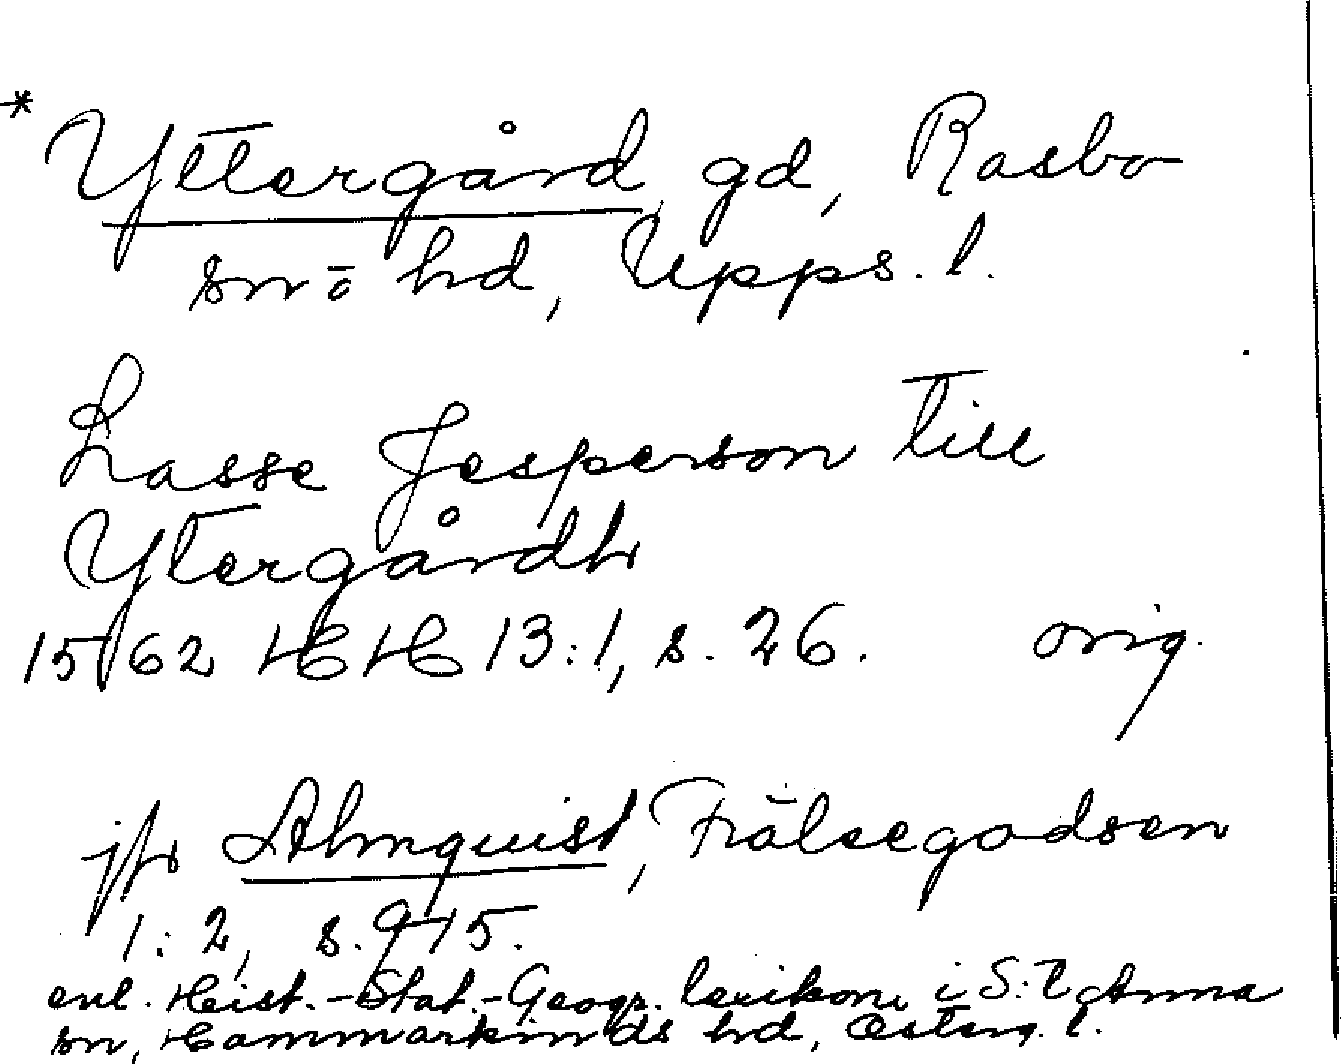 * Yttergård gd, Rasbo
sn o hd, Upps. l.
Lasse Jesperson till
Ytergårdh
1562 HH 13:1, s. 26. orig.
jfr Almquist, Frälsegodsen
1:2, s. 915.
enl. Hist.-Stat.-Geogr. lexikon i S:t Anna
sn, Hammarkinds hd, Österg. l.